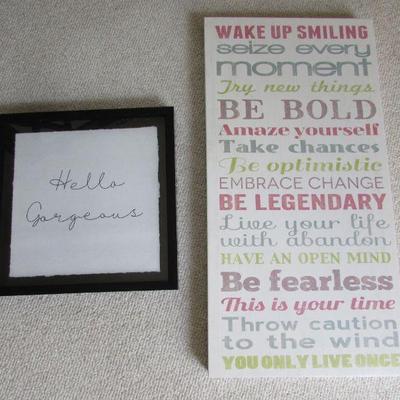 Hello
Gorgeous
WAKE UP SMILING
seize every
moment
Try new things
BE BOLD
Amaze yourself
Take chances
Be optimistic
EMBRACE CHANGE
BE LEGENDARY
Live your life
with abandon
HAVE AN OPEN MIND
Be fearless
This is your time
Throw caution
to the wind
YOU ONLY LIVE ONCE